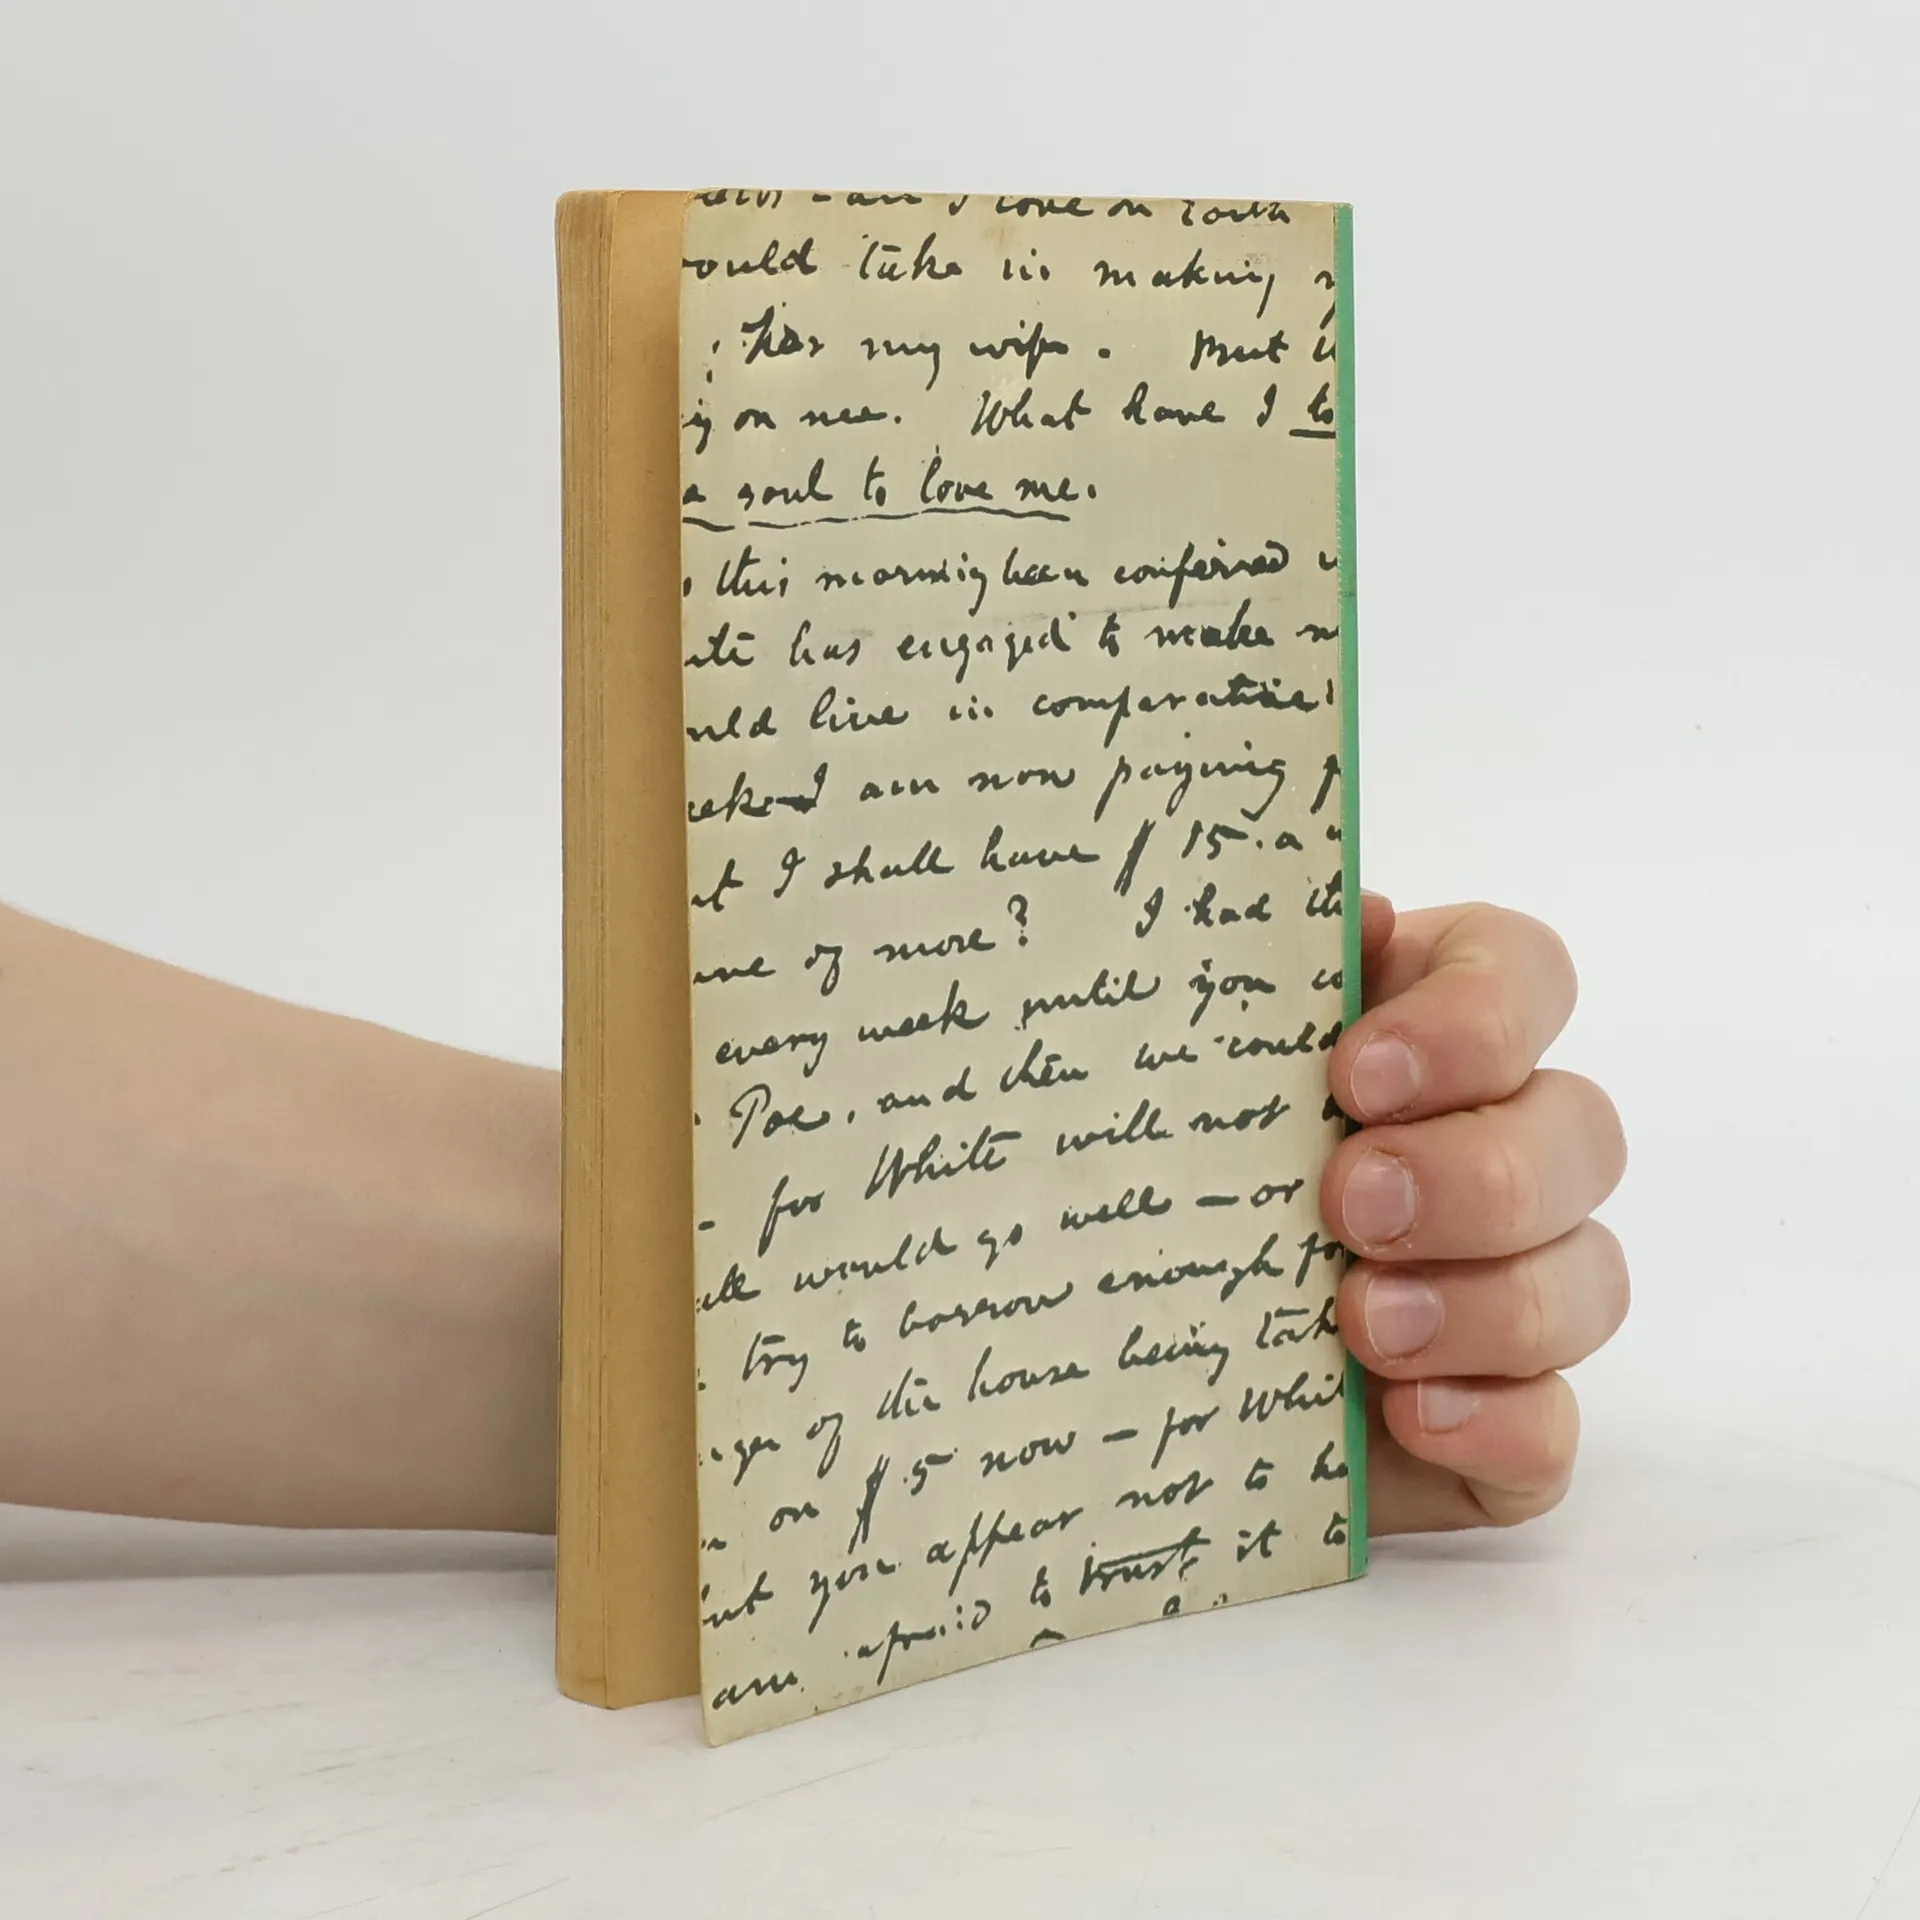 all I love on Earth
ould take in making
her my wife. But
on me. What have I to
soul to love me.
this morning been conferred
has engaged to make
uld live in comparative
I am now paying
I shall have $15. a
of more? I had
every week until you
Poe, and then we could
- for White will not
would go well — or
try to borrow enough for
of the house being tak
on $5 now — for Whit
ut you appear not to ha
am afraid to trust it to